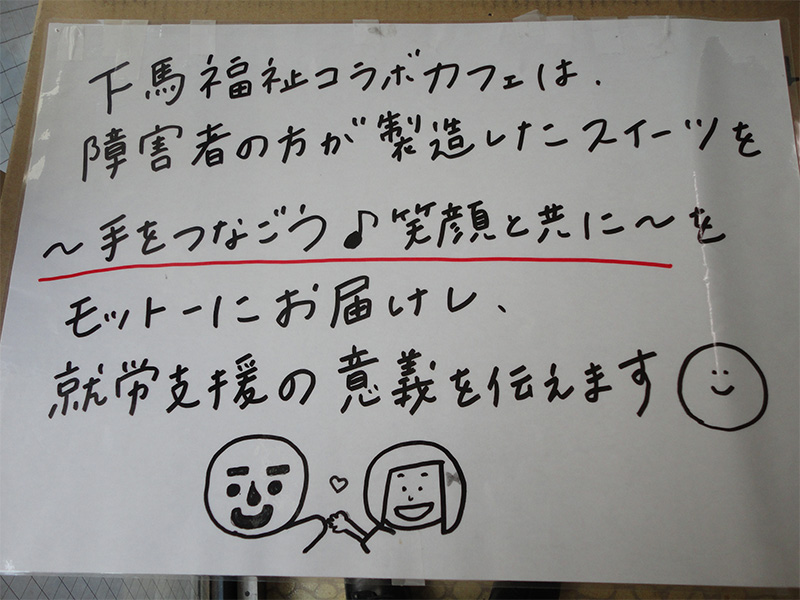 下馬福祉コラボカフェは、
障害者の方が製造したスイーツを
～手をつなごう♪笑顔と共に～を
モットーにお届けし、
就労支援の意義を伝えます